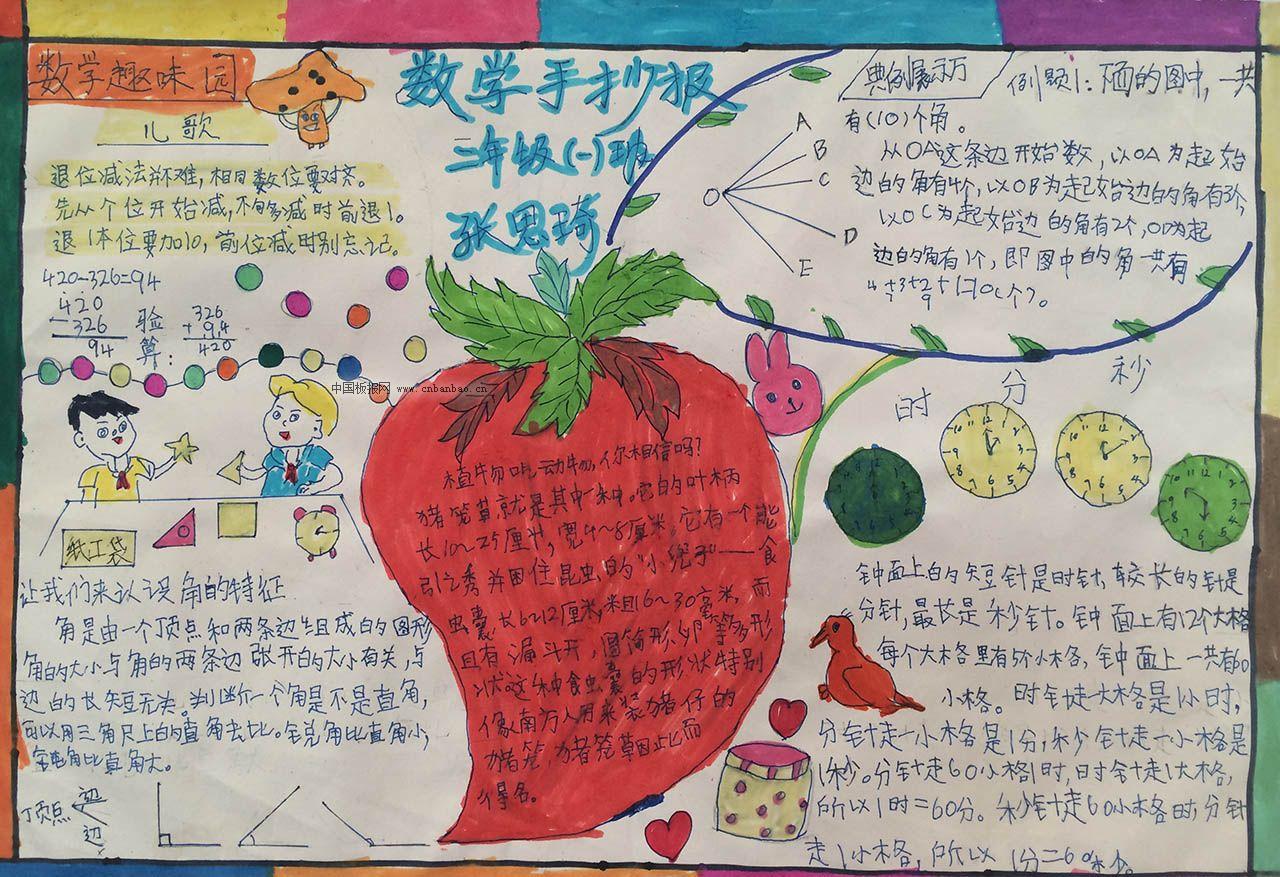 数学趣味园
儿歌
退位减法并不难，相同数位要对齐。
先从个位开始减，不够减时前退1。
退1本位要加10，前位减时别忘记。
420-326=94
420
-326
94
验
算：
326
+94
420
数学手抄报
二年级(一)班
张思琦
典例展示厅
例题1：下面的图中，一共
有(10)个角。
从OA这条边开始数，以OA为起始
边的角有4个，以OB为起始边的角有3个，
以OC为起始边的角有2个，OD为起
边的角有1个，即图中的角一共有
4+3+2+1=10(个)。
7
9
O
A
B
C
D
E
中国板报网 www.cnbanbao.cn
纸工袋
让我们来认识角的特征
角是由一个顶点和两条边组成的图形
角的大小与角的两条边张开的大小有关，与
边的长短无关。判断一个角是不是直角，
可以用三角尺上的直角去比。锐角比直角小，
钝角比直角大。
顶点
边
边
植物吃动物，你相信吗？
猪笼草就是其中一种。它的叶柄
长10~25厘米，宽4~8厘米，它有一个能
引诱并困住昆虫的“小笼子”——食
虫囊，长6~12厘米，粗16~30毫米，而
且有漏斗形，圆筒形，卵等多形
状这种食虫囊的形状特别
像南方人用来装猪仔的
猪笼，猪笼草因此而
得名。
时
分
秒
钟面上的短针是时针，较长的针是
分针，最长是秒针。钟面上有12个大格
每个大格里有5个小格，钟面上一共有60
小格。时针走大格是1小时，
分针走一小格是1分，秒针走一小格是
1秒。分针走60小格1时，时针走1大格，
所以1时=60分。秒针走60小格时，分针
走1小格，所以1分=60秒。